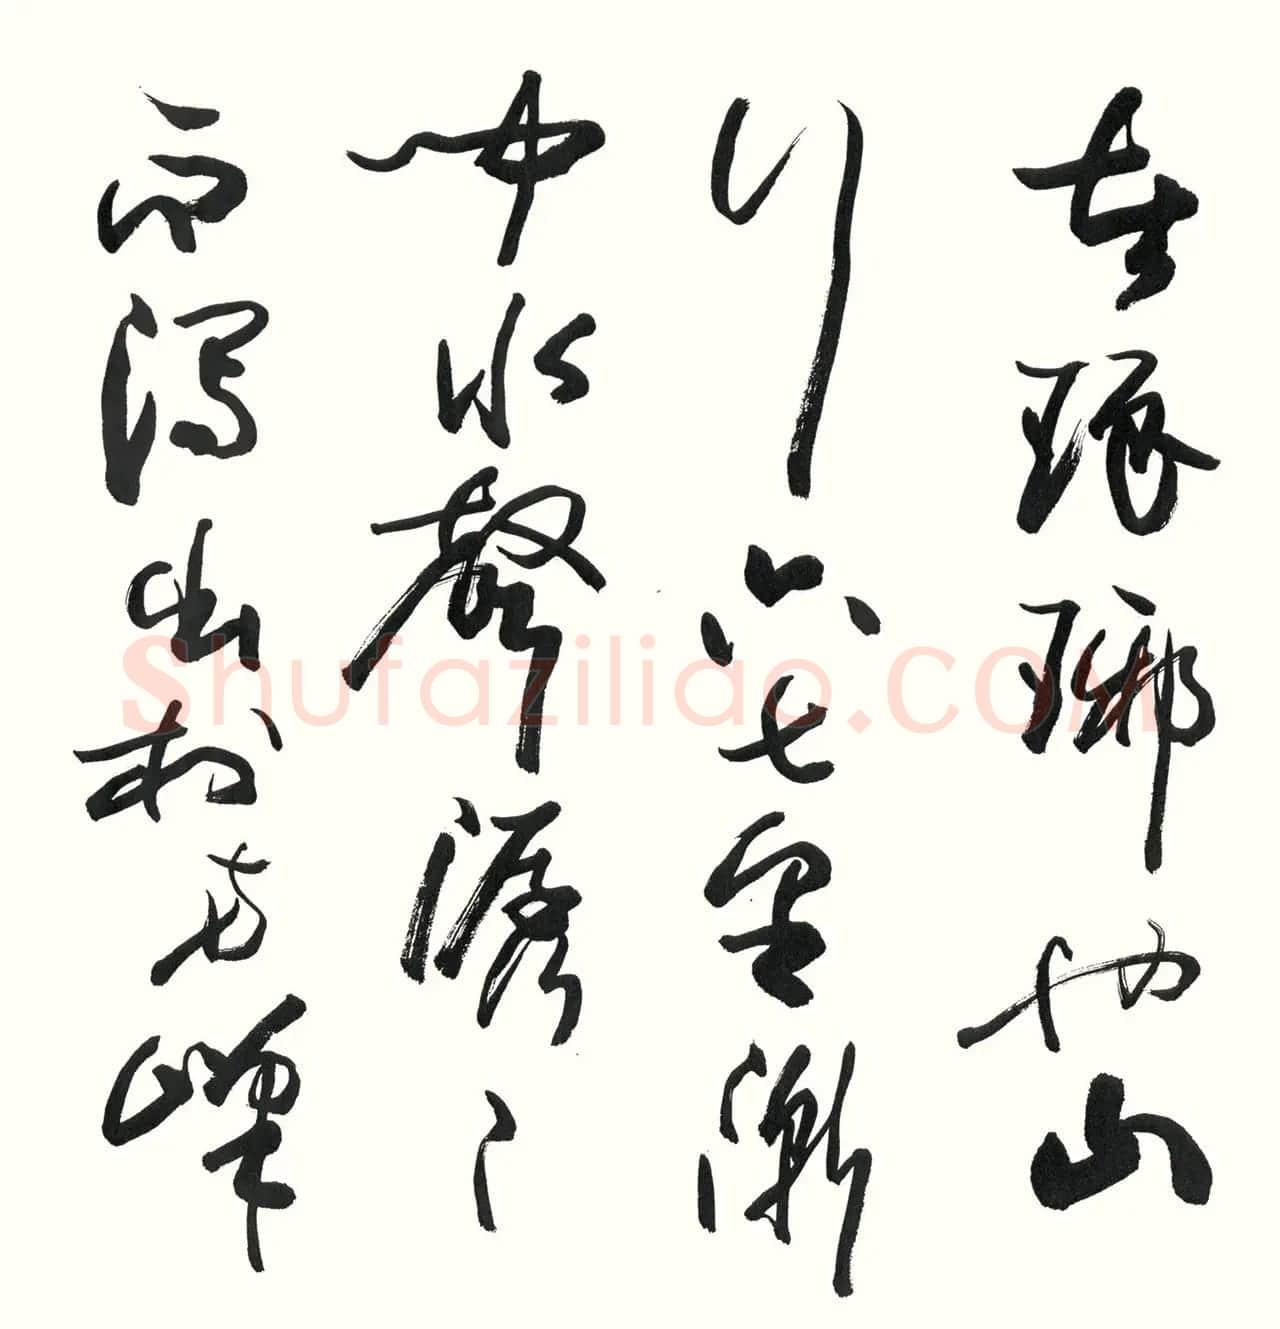 者琅琊也山
行六七里漸
聞水聲潺〻
而瀉出於兩峰
Shufaziliao.COM